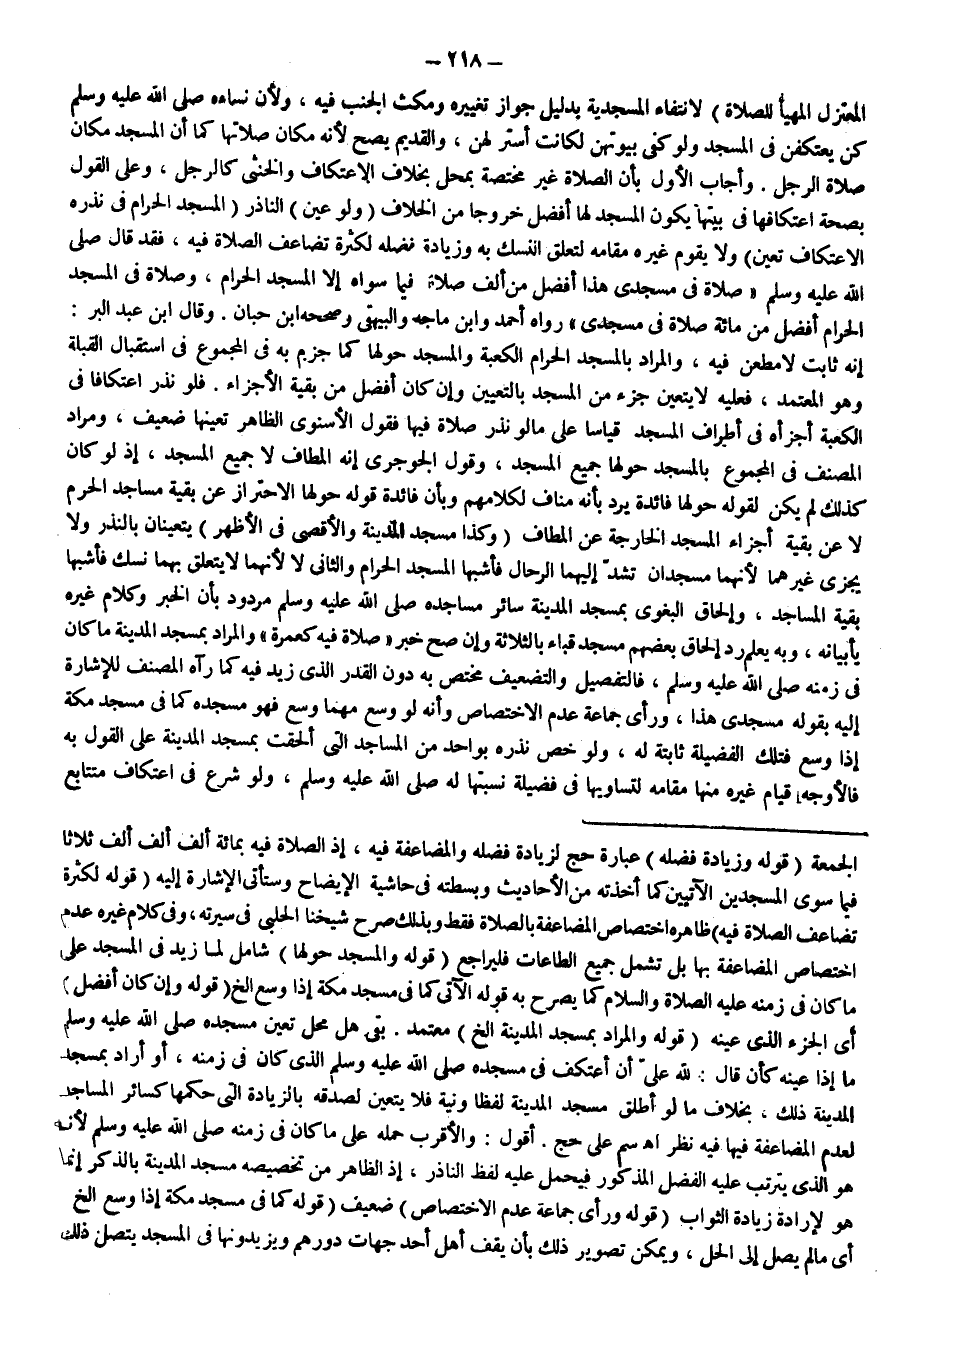 — ٢١٨ —
المعتزل المهيأ للصلاة ) لانتفاء المسجدية بدليل جواز تغييره ومكث الجنب فيه ، ولأن نساءه صلى الله عليه وسلم
كن يعتكفن فى المسجد ولو كفى بيوتهن لكانت أستر لهن ، والقديم يصح لأنه مكان صلاتها كما أن المسجد مكان
صلاة الرجل . وأجاب الأول بأن الصلاة غير مختصة بمحل بخلاف الإعتكاف والخنثى كالرجل ، وعلى القول
بصحة اعتكافها فى بيتها يكون المسجد لها أفضل خروجا من الخلاف ( ولو عين ) الناذر ( المسجد الحرام فى نذره
الاعتكاف تعين) ولا يقوم غيره مقامه لتعلق النسك به وزيادة فضله لكثرة تضاعف الصلاة فيه ، فقد قال صلى
الله عليه وسلم « صلاة فى مسجدى هذا أفضل من ألف صلاة فيما سواه إلا المسجد الحرام ، وصلاة فى المسجد
الحرام أفضل من مائة صلاة فى مسجدى » رواه أحمد وابن ماجه والبيهقى وصححه ابن حبان . وقال ابن عبد البر :
إنه ثابت لامطعن فيه ، والمراد بالمسجد الحرام الكعبة والمسجد حولها كما جزم به فى المجموع فى استقبال القبلة
وهو المعتمد ، فعليه لايتعين جزء من المسجد بالتعيين وإن كان أفضل من بقية الأجزاء . فلو نذر اعتكافا فى
الكعبة أجزأه فى أطراف المسجد قياسا على مالو نذر صلاة فيها فقول الأسنوى الظاهر تعينها ضعيف ، ومراد
المصنف فى المجموع بالمسجد حولها جميع المسجد ، وقول الجوجرى إنه المطاف لا جميع المسجد ، إذ لو كان
كذلك لم يكن لقوله حولها فائدة يرد بأنه مناف لكلامهم وبأن فائدة قوله حولها الاحتراز عن بقية مساجد الحرم
لا عن بقية أجزاء المسجد الخارجة عن المطاف ( وكذا مسجد المدينة والأقصى فى الأظهر ) يتعينان بالنذر ولا
يجزى غيرهما لأنهما مسجدان تشدّ إليهما الرحال فأشبها المسجد الحرام والثانى لا لأنهما لايتعلق بهما نسك فأشبها
بقية المساجد ، وإلحاق البغوى بمسجد المدينة سائر مساجده صلى الله عليه وسلم مردود بأن الخبر وكلام غيره
يأبيانه ، وبه يعلم رد إلحاق بعضهم مسجد قباء بالثلاثة وإن صح خبر « صلاة فيه كعمرة » والمراد بمسجد المدينة ما كان
فى زمنه صلى الله عليه وسلم ، فالتفصيل والتضعيف مختص به دون القدر الذى زيد فيه كما رآه المصنف للإشارة
إليه بقوله مسجدى هذا ، ورأى جماعة عدم الاختصاص وأنه لو وسع مهما وسع فهو مسجده كما فى مسجد مكة
إذا وسع فتلك الفضيلة ثابتة له ، ولو خص نذره بواحد من المساجد التى ألحقت بمسجد المدينة على القول به
فالأوجه قيام غيره منها مقامه لتساويها فى فضيلة نسبتها له صلى الله عليه وسلم ، ولو شرع فى اعتكاف متتابع
الجمعة ( قوله وزيادة فضله ) عبارة حج لزيادة فضله والمضاعفة فيه ، إذ الصلاة فيه بمائة ألف ألف ألف ثلاثا
فيما سوى المسجدين الآتيين كما أخذته من الأحاديث وبسطته فى حاشية الإيضاح وستأتى الإشارة إليه ( قوله لكثرة
تضاعف الصلاة فيه) ظاهره اختصاص المضاعفة بالصلاة فقط وبذلك صرح شيخنا الحلبى فى سيرته، وفى كلام غيره عدم
اختصاص المضاعفة بها بل تشمل جميع الطاعات فليراجع ( قوله والمسجد حولها ) شامل لما زيد فى المسجد على
ما كان فى زمنه عليه الصلاة والسلام كما يصرح به قوله الآتى كما فى مسجد مكة إذا وسع الخ ( قوله وإن كان أفضل )
أى الجزء الذى عينه ( قوله والمراد بمسجد المدينة الخ ) معتمد . بقى هل محل تعين مسجده صلى الله عليه وسلم
ما إذا عينه كأن قال : لله علىّ أن أعتكف فى مسجده صلى الله عليه وسلم الذى كان فى زمنه ، أو أراد بمسجد
المدينة ذلك ، بخلاف ما لو أطلق مسجد المدينة لفظا ونية فلا يتعين لصدقه بالزيادة التى حكمها كسائر المساجد
لعدم المضاعفة فيها فيه نظر اهـ سم على حج . أقول : والأقرب حمله على ما كان فى زمنه صلى الله عليه وسلم لأنه
هو الذى يترتب عليه الفضل المذكور فيحمل عليه لفظ الناذر ، إذ الظاهر من تخصيصه مسجد المدينة بالذكر إنما
هو لإرادة زيادة الثواب ( قوله ورأى جماعة عدم الاختصاص ) ضعيف ( قوله كما فى مسجد مكة إذا وسع الخ
أى مالم يصل إلى الحل ، ويمكن تصوير ذلك بأن يقف أهل أحد جهات دورهم ويزيدونها فى المسجد يتصل ذلك